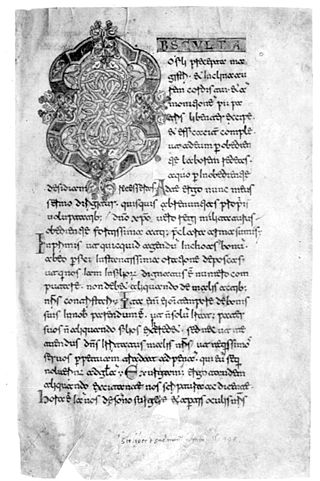 BSCULTA
o fili precepta ma
gistri, & inclina aure
tui, & ad
monitione pii pa
tris libenter excipe
& efficaciter comple
ut ad eum per obedien
tie laborem redeas
a quo p inobedientie
desidiam recesseras Ad te ergo nunc meus
sermo dirigitur quisquis abrenuntians propriis
voluptatibus dno xpo vero regi militaturus
obedientie fortissima atque preclara arma sumis
Inprimis ut quicquid agendum inchoas bonu
ab eo instantissima oratione deposcas
ut qui nos iam in filior dignatus e numero com
putare non debet aliquando de malis actib
nris contristari Ita ei omni tempore de bonis
suis in nob parendum e ut non solu iratus pater
suos n aliquando filios exheredet sed nec ut
dns irritatus malis nris ut nequissimos
servos perpetuam tradat ad pena qui eu sequi
noluerint ad gla Exurgamus ergo tandem
aliquando excitante nos scriptura ac dicente
Hora e iam nos de somno surgere & apertis oculis nris